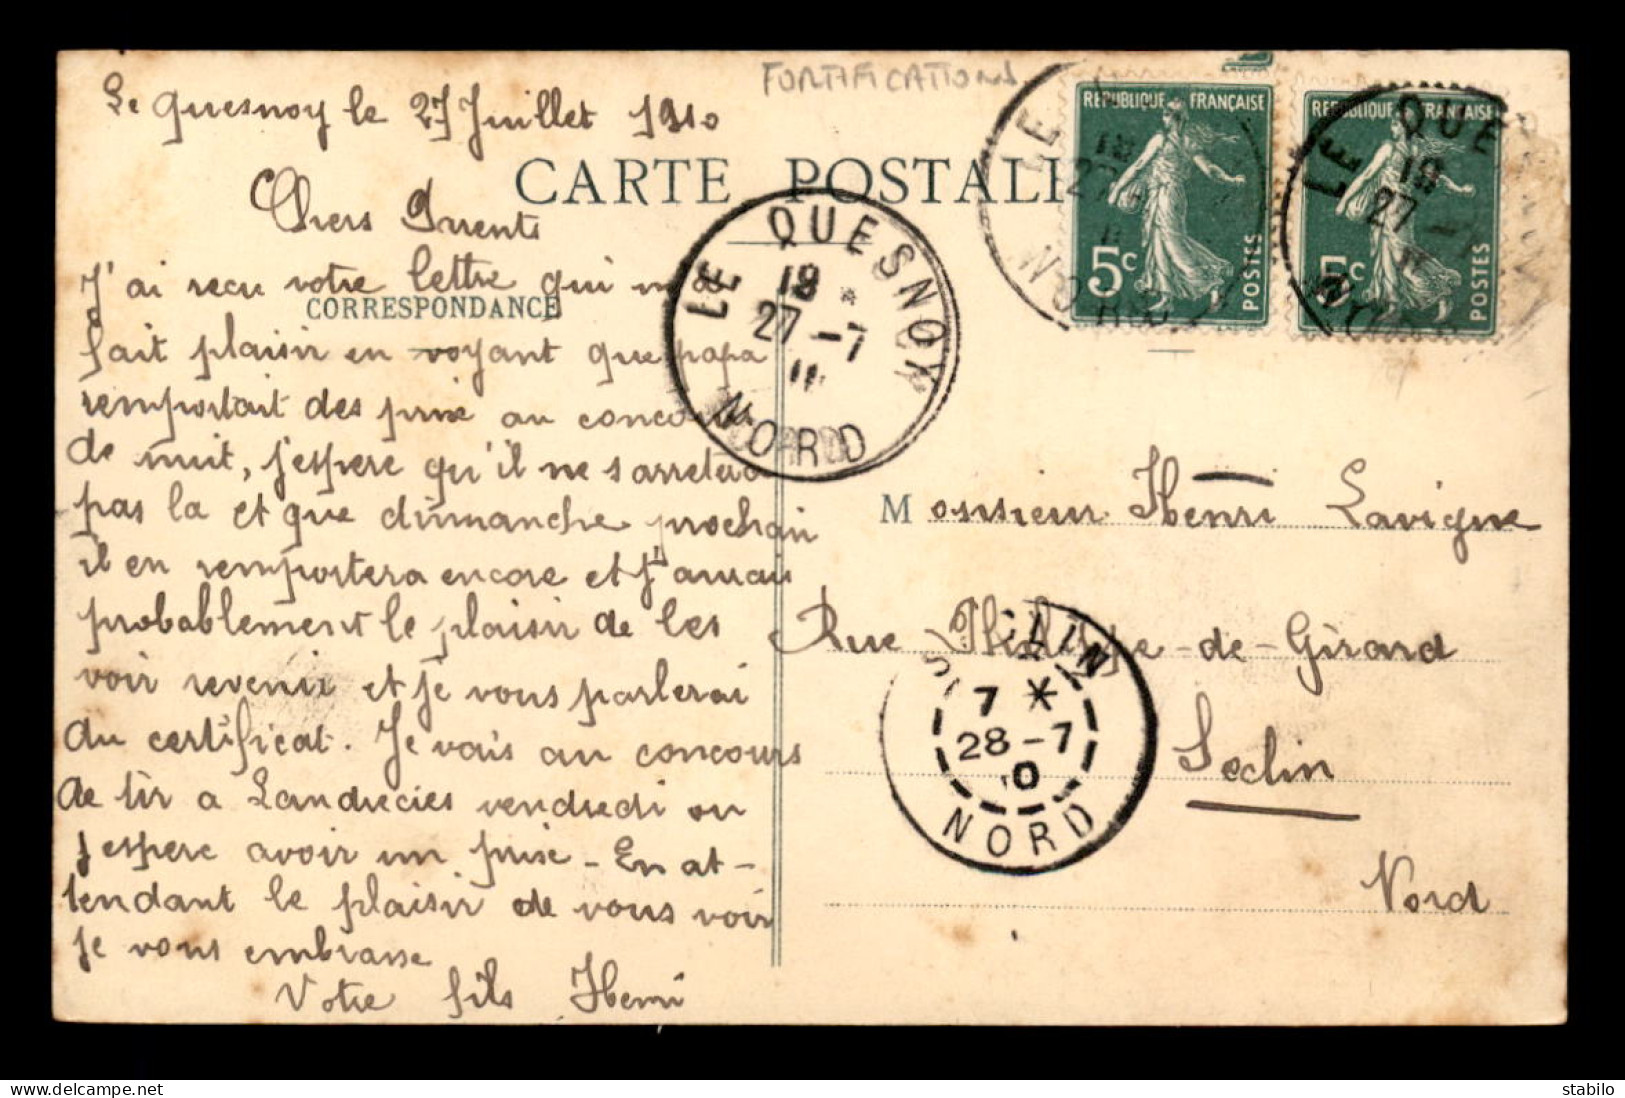 FORTIFICATIONS
Le Quesnoy le 27 Juillet 1910
CARTE POSTALE
Chers Parents
CORRESPONDANCE
J'ai recu votre lettre qui m'a
fait plaisir en voyant que papa
remportait des prix au concours
de nuit, j'espere qu'il ne s'arretera
pas la et que dimanche prochain
il en remportera encore et j'aurai
probablement le plaisir de les
voir revenir et je vous parlerai
du certificat. Je vais au concours
de tir a Landrecies vendredi ou
j'espere avoir un prix - En at-
tendant le plaisir de vous voir
je vous embrasse
Votre fils Henri
REPUBLIQUE FRANÇAISE
5c
POSTES
REPUBLIQUE FRANÇAISE
5c
POSTES
LE QUESNOY
18 *
27 - 7
NORD
LE
27
NORD
LE QUE
18
27 - 7
Monsieur Henri Lavigne
Rue Philippe-de-Girard
Seclin
Nord
SECLIN
7 *
28 - 7
10
NORD
delcampe.net
stabilo